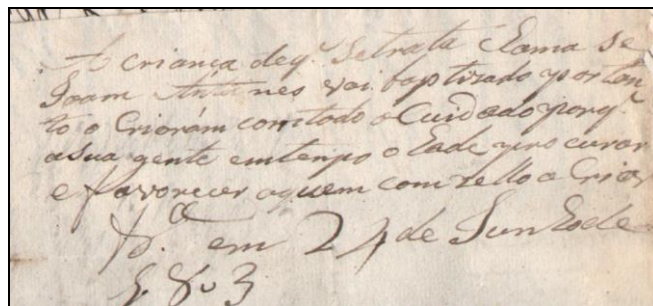 A criança deq.^ Se trata Xama se
Joam Antunes vai baptizado portan
to o Criarám com todo o Cuidado porq.^
asua gente em tempo o Eade procurar
e favorecer aquem com zello o Criar
em 24 de Junho de
1803